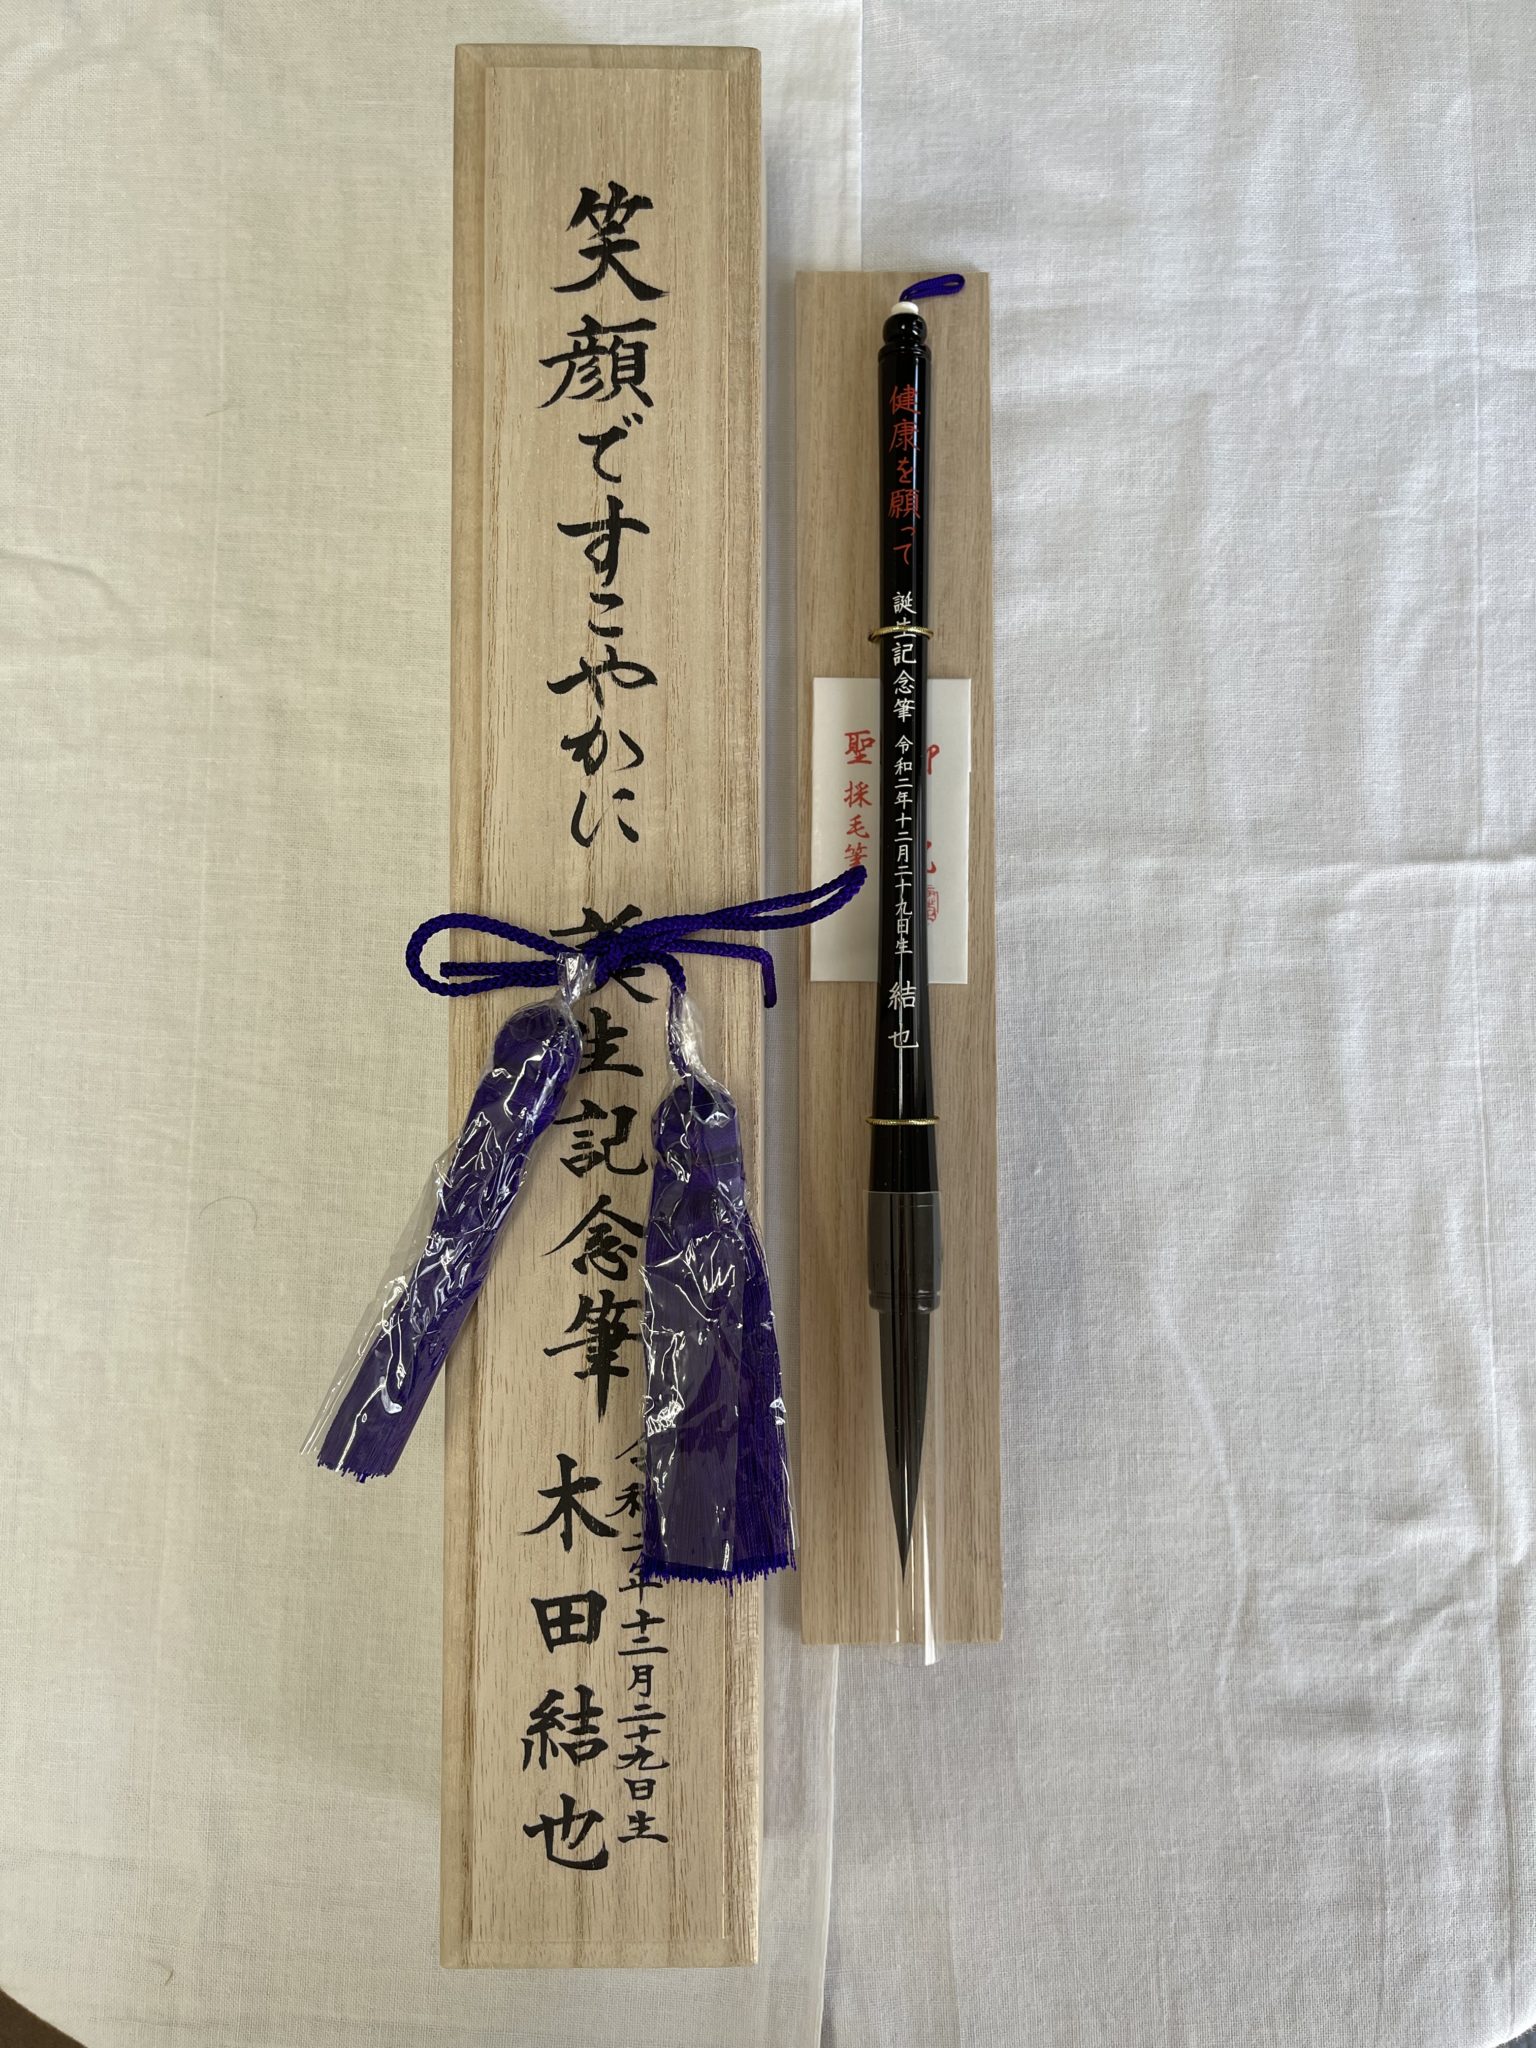 笑顔ですこやかに 美生記念筆 木田結也
令和二年十二月二十九日生
健康を願って 誕生記念筆 令和二年十二月二十九日生 結也
聖 採毛筆